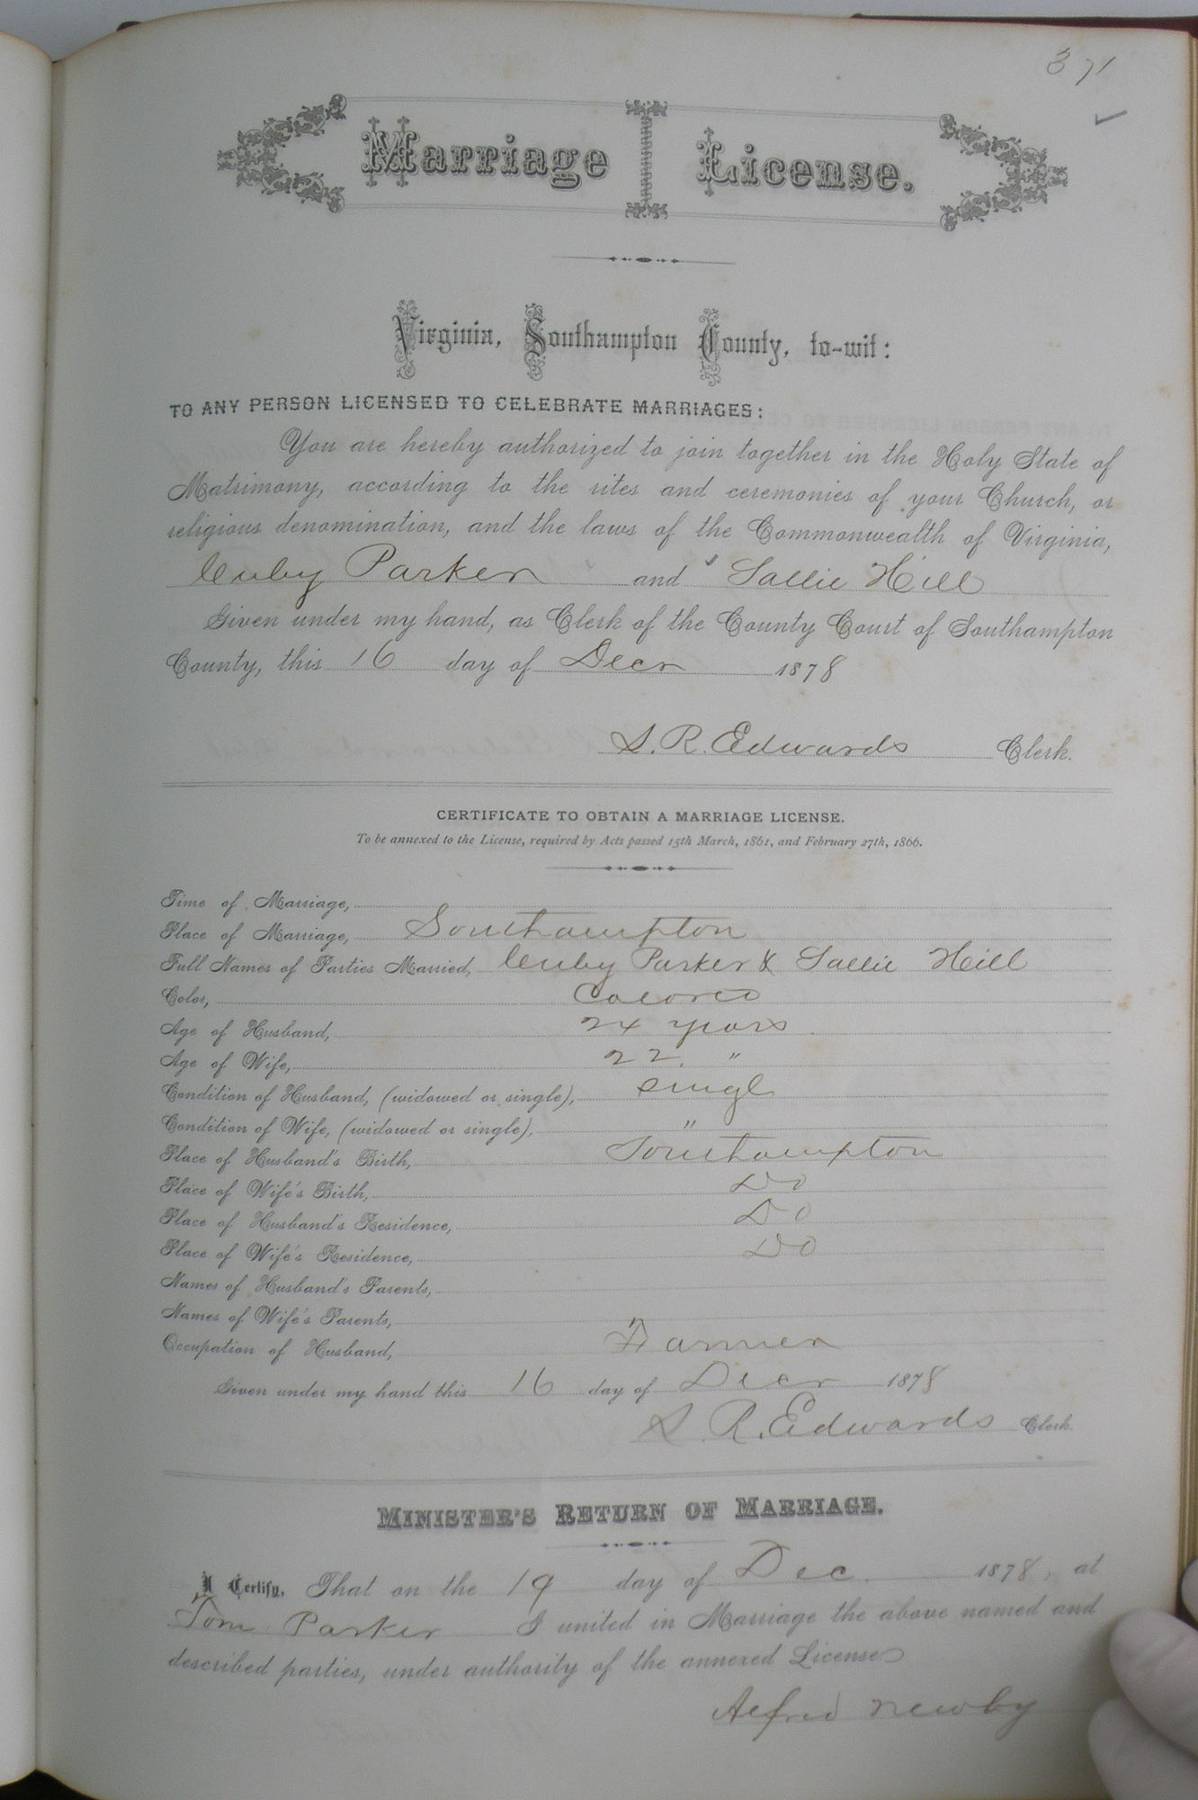 371
Marriage License.
Virginia, Southampton County, to-wit:
TO ANY PERSON LICENSED TO CELEBRATE MARRIAGES:
You are hereby authorized to join together in the Holy State of
Matrimony, according to the rites and ceremonies of your Church, or
religious denomination, and the laws of the Commonwealth of Virginia,
Parker and Sallie Hill
Given under my hand, as Clerk of the County Court of Southampton
County, this 16 day of Decr 1878
S. R. Edwards Clerk.
CERTIFICATE TO OBTAIN A MARRIAGE LICENSE.
To be annexed to the License, required by Acts passed 15th March, 1861, and February 27th, 1866.
Time of Marriage,
Place of Marriage, Southampton
Full Names of Parties Married, Parker & Sallie Hill
Color, Colored
Age of Husband, 24 years
Age of Wife, 22 "
Condition of Husband, (widowed or single), Singl
Condition of Wife, (widowed or single), "
Place of Husband's Birth, Southampton
Place of Wife's Birth, Do
Place of Husband's Residence, Do
Place of Wife's Residence, Do
Names of Husband's Parents,
Names of Wife's Parents,
Occupation of Husband, Farmer
Given under my hand this 16 day of Decr 1878
S. R. Edwards Clerk.
MINISTER'S RETURN OF MARRIAGE.
I Certify, That on the 19 day of Dec. 1878, at
Tom Parker I united in Marriage the above named and
described parties, under authority of the annexed License
Alfred Newby